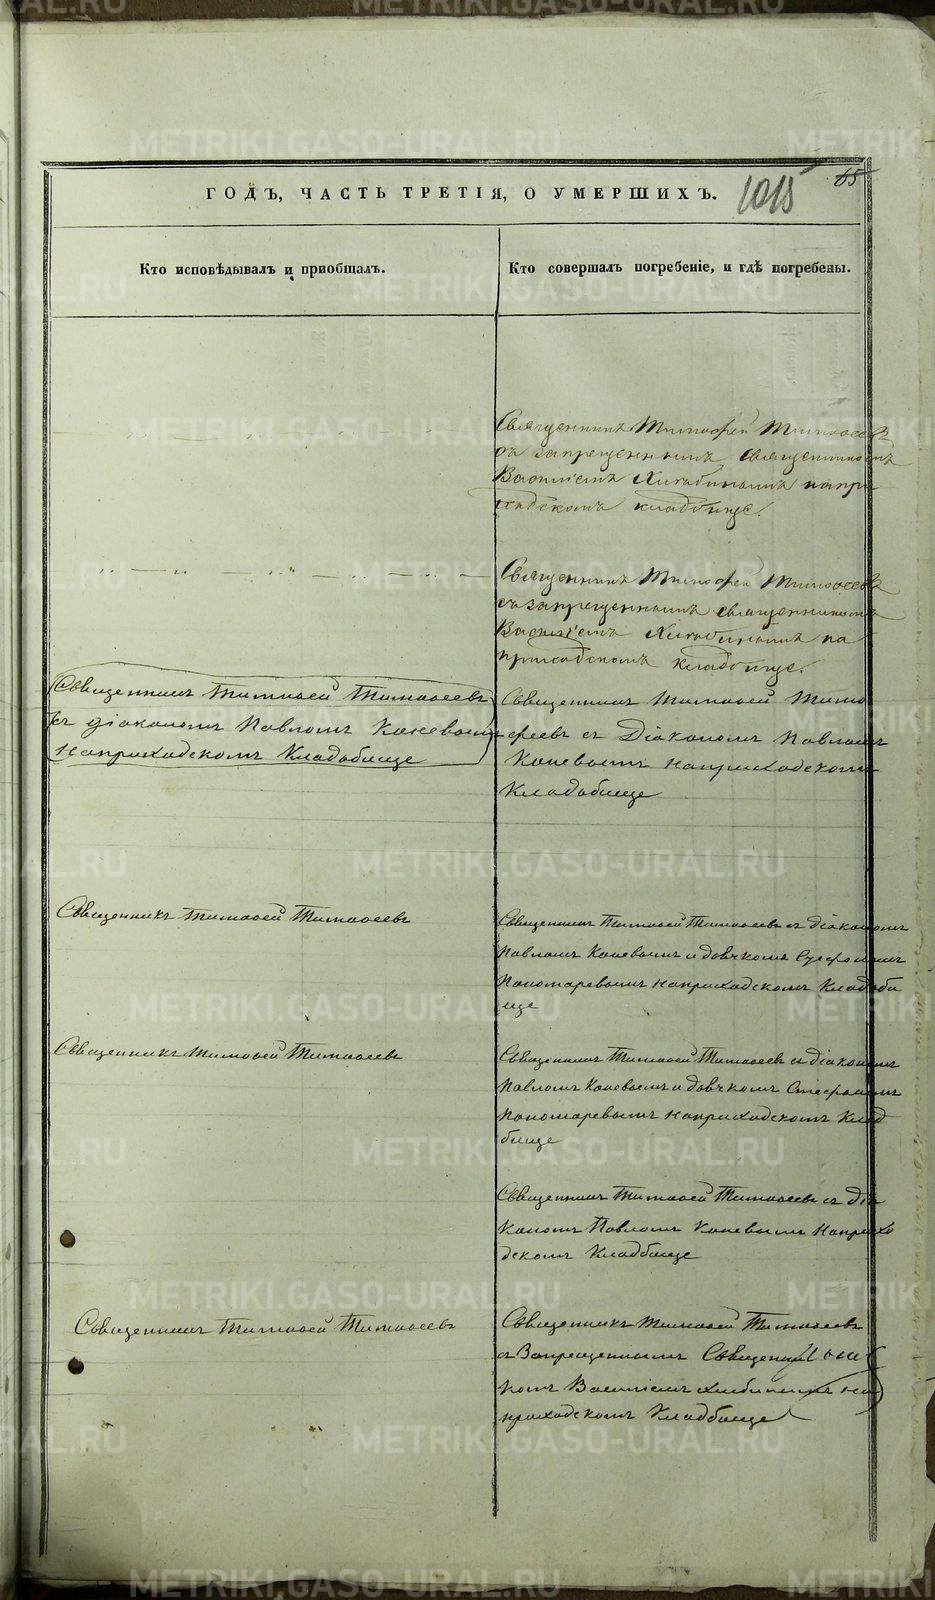 ГОДЪ, ЧАСТЬ ТРЕТІЯ, О УМЕРШИХЪ.
1015
65
Кто исповѣдывалъ и приобщалъ.
Кто совершалъ погребеніе, и гдѣ погребены.
Священникъ Тимофей Тимофеевъ
съ запрещеннымъ священникомъ
Василіемъ на при
ходскомъ кладбище.
Священникъ Тимофей Тимофеевъ
съ запрещеннымъ священникомъ
Василіемъ на
приходскомъ кладбище.
Священникъ Тимофей Тимофеевъ
съ діакономъ Павломъ Каневымъ
на приходскомъ Кладобище
Священникъ Тимофей Тимо
феевъ съ Діакономъ Павломъ
Каневымъ на приходскомъ
Кладобище
Священникъ Тимофей Тимофеевъ
Священникъ Тимофей Тимофеевъ съ діакономъ
Павломъ Каневымъ и дьчкомъ Стефаномъ
Пономаревымъ на приходскомъ Кладоби
ще
Священникъ Тимофей Тимофеевъ
Священникъ Тимофей Тимофеевъ съ діакономъ
Павломъ Каневымъ и дьчкомъ Стефаномъ
Пономаревымъ на приходскомъ Клад
бище
Священникъ Тимофей Тимофеевъ съ діа
кономъ Павломъ Каневымъ на прихо
дскомъ Кладбище
Священникъ Тимофей Тимофеевъ
Священникъ Тимофей Тимофеевъ
съ Запрещеннымъ
комъ Василіемъ на
приходскомъ Кладбище
METRIKI.GASO-URAL.RU